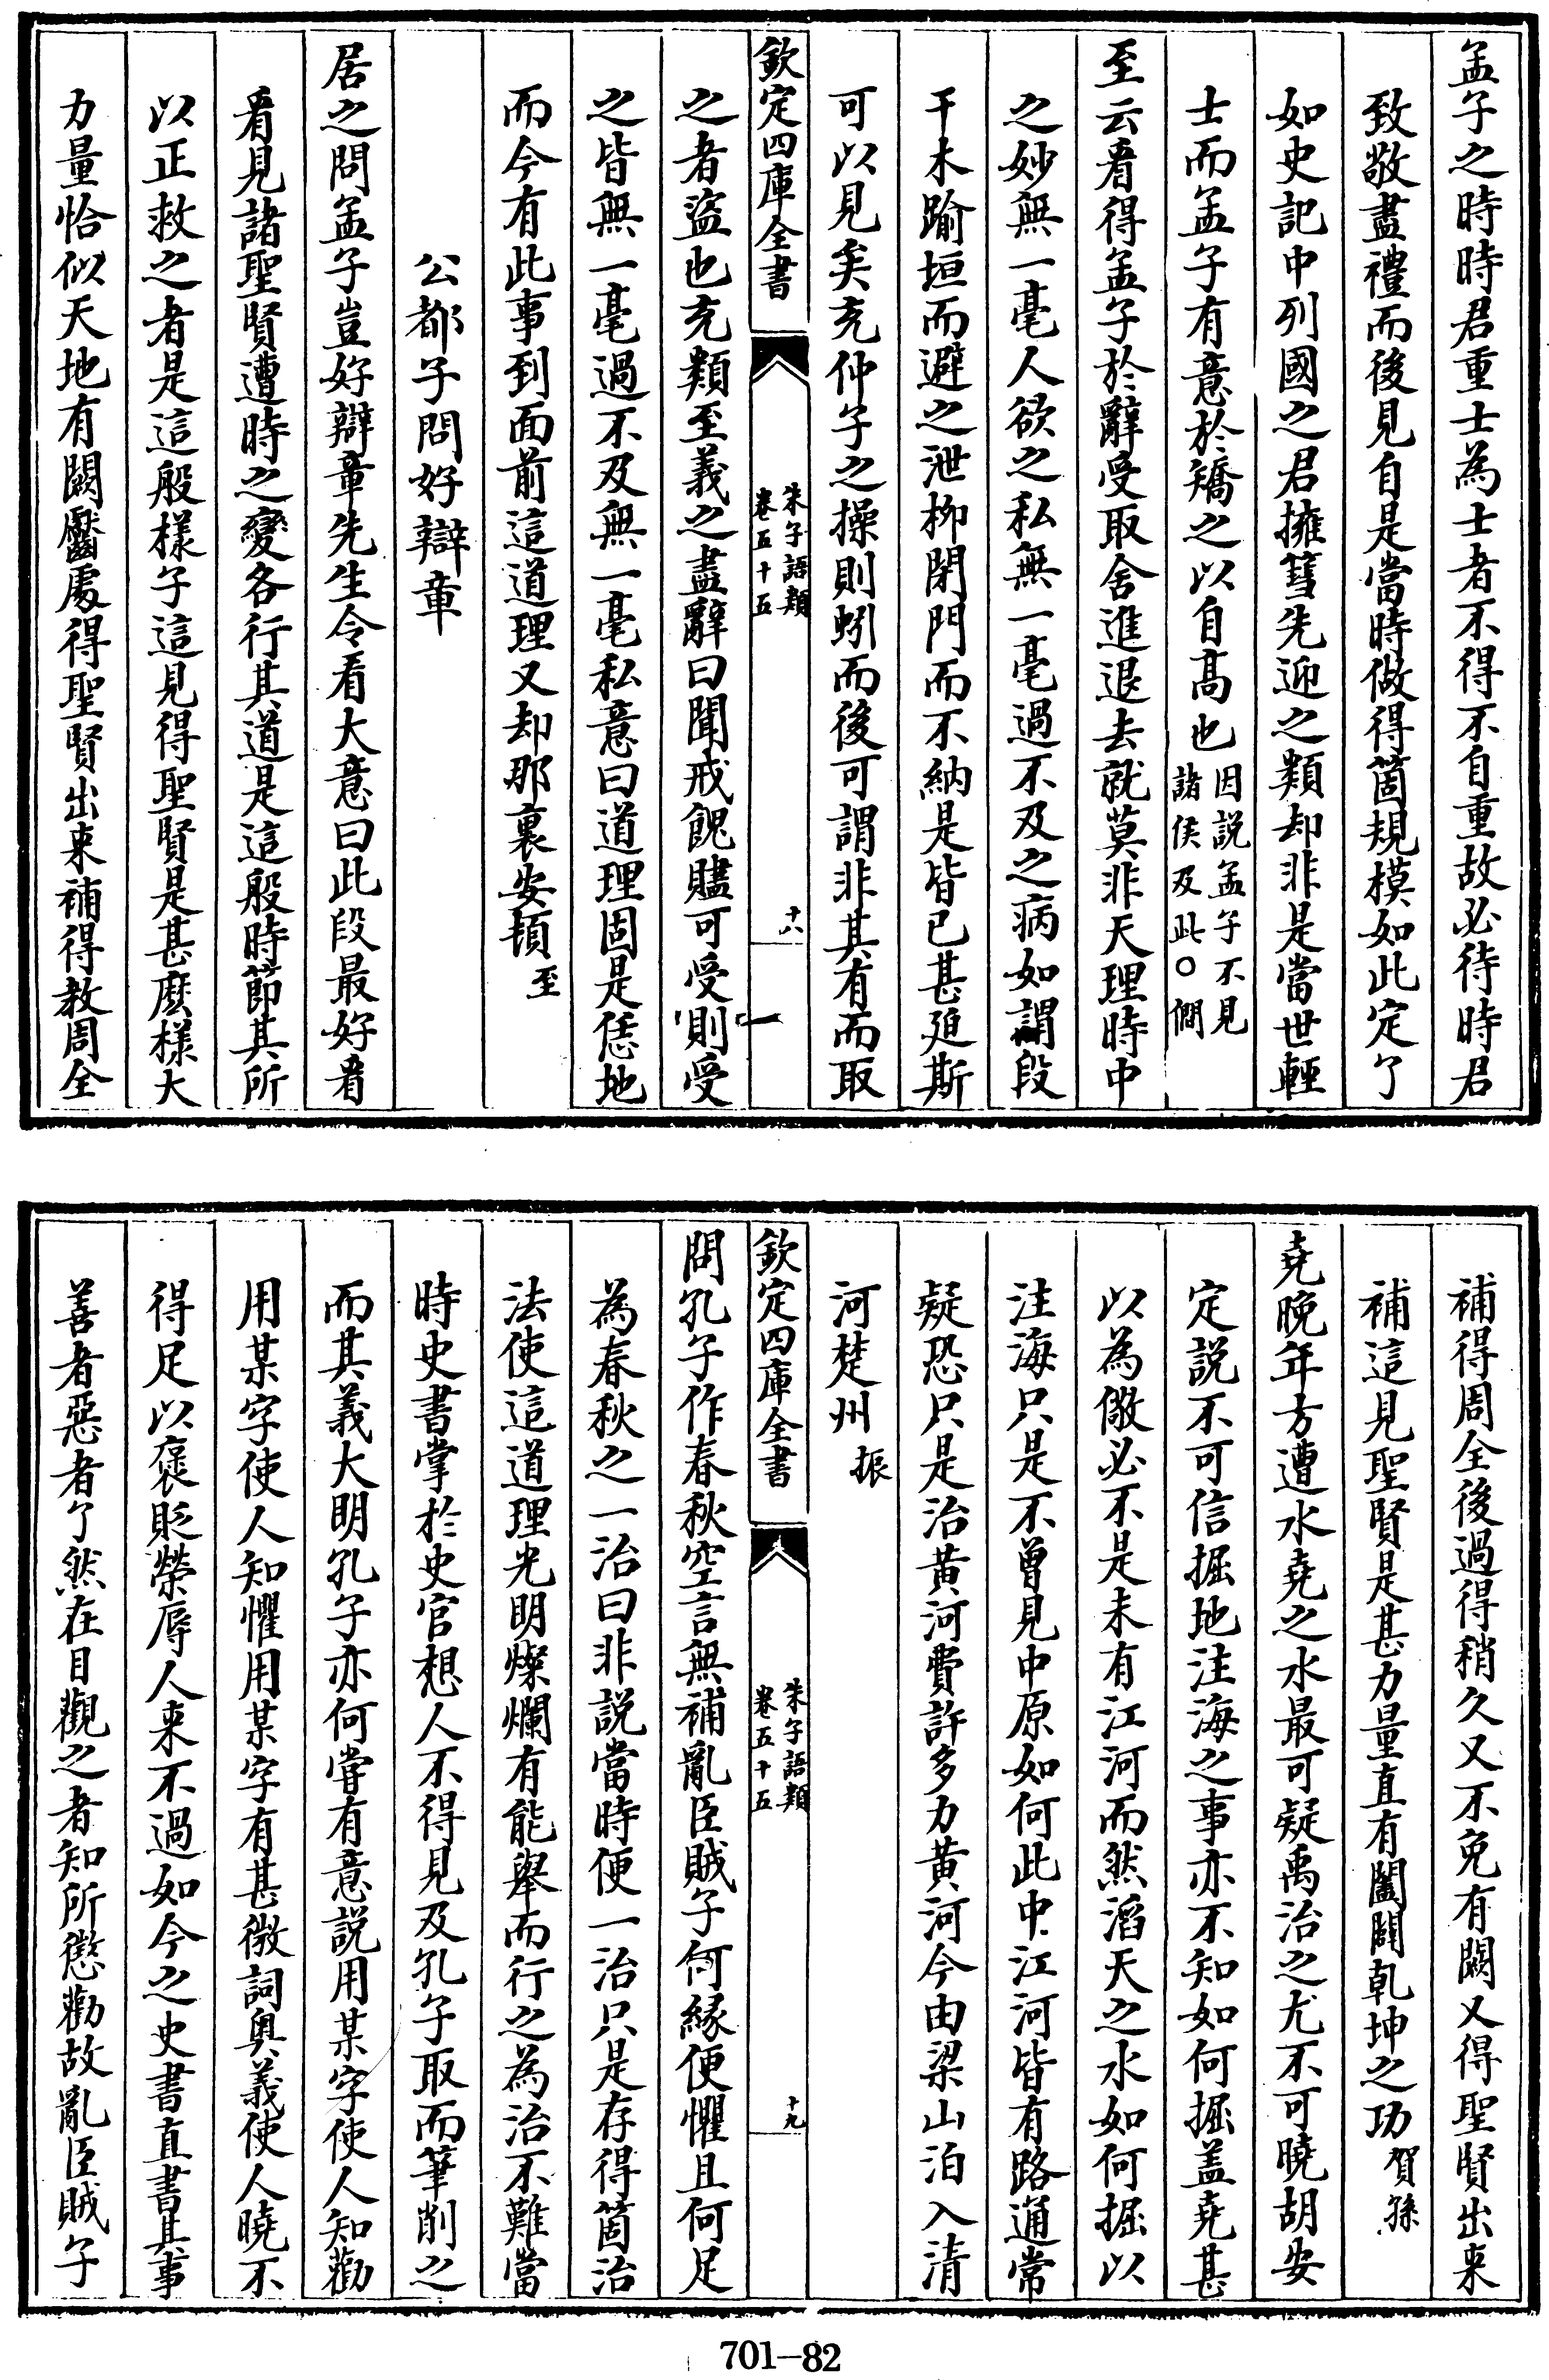 孟子之時時君重士為士者不得不自重故必待時君
致敬盡禮而後見自是當時做得箇規模如此定了
如史記中列國之君擁篲先迎之類却非是當世輕
士而孟子有意於矯之以自高也因説孟子不見諸侯及此○僴
至云看得孟子於辭受取舍進退去就莫非天理時中
之妙無一毫人欲之私無一毫過不及之病如謂段
干木踰垣而避之泄柳閉門而不納是皆已甚廹斯
可以見矣充仲子之操則蚓而後可謂非其有而取
欽定四庫全書
朱子語類
卷五十五
十八
之者盜也充類至義之盡辭曰聞戒餽贐可受則受
之皆無一毫過不及無一毫私意曰道理固是恁地
而今有此事到面前這道理又却那裏安頓至
公都子問好辯章
居之問孟子豈好辯章先生令看大意曰此段最好看
看見諸聖賢遭時之變各行其道是這般時節其所
以正救之者是這般樣子這見得聖賢是甚麽樣大
力量恰似天地有闕齾處得聖賢出来補得教周全
補得周全後過得稍久又不免有闕又得聖賢出来
補這見聖賢是甚力量直有闔闢乾坤之功賀孫
堯晚年方遭水堯之水最可疑禹治之尤不可曉胡安
定説不可信掘地注海之事亦不知如何掘盖堯甚
以為儆必不是未有江河而然滔天之水如何掘以
注海只是不曾見中原如何此中江河皆有路通常
疑恐只是治黄河費許多力黄河今由梁山泊入清
河楚州振
欽定四庫全書
朱子語類
卷五十五
十九
問孔子作春秋空言無補亂臣賊子何緣便懼且何足
為春秋之一治曰非説當時便一治只是存得箇治
法使這道理光明燦爛有能舉而行之為治不難當
時史書掌於史官想人不得見及孔子取而筆削之
而其義大明孔子亦何嘗有意説用某字使人知勸
用某字使人知懼用某字有甚微詞奥義使人曉不
得足以襃貶榮辱人来不過如今之史書直書其事
善者惡者了然在目觀之者知所懲勸故亂臣賊子
701—82